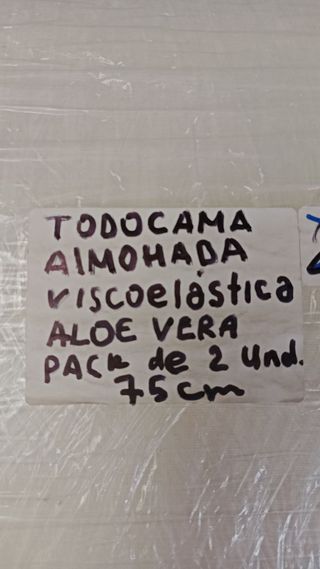 TODOCAMA
AlMOHADA
viscoelástica
ALOE VERA
PACK de 2 Und.
75 cm